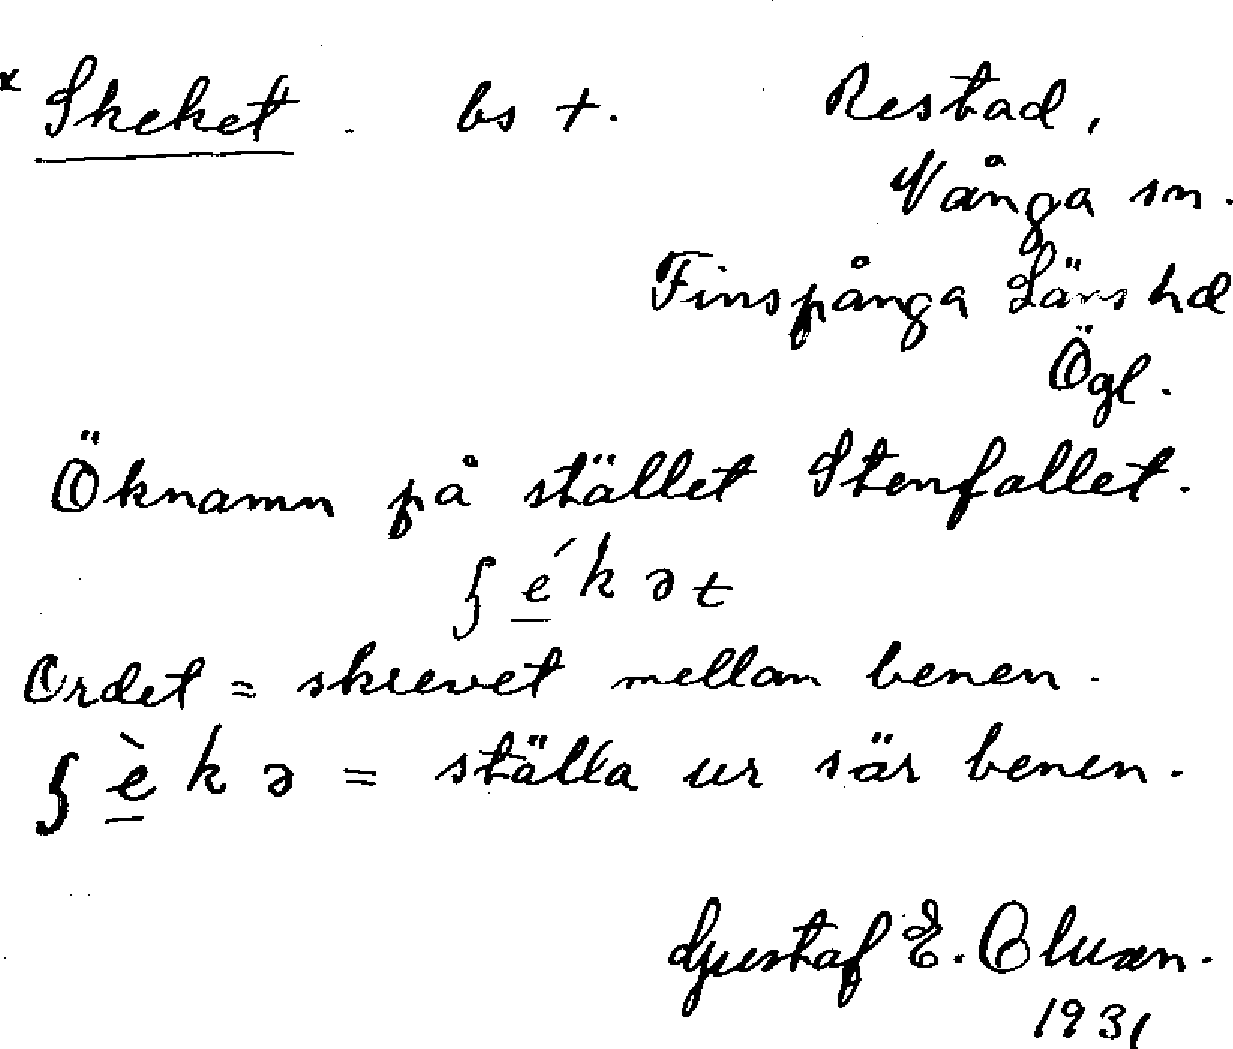 x Skeket. bs +. Restad,
Vånga sn.
Finspånga Läns hd
Ögl.
Öknamn på stället Stenfallet.
ʃ é k ə t
Ordet = skrevet mellan benen.
ʃ è k ə = ställa ur sär benen.
Gustaf E.
1931